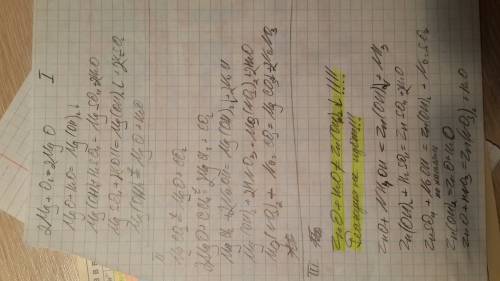 I
2Mg + O₂ = 2MgO
MgO + H₂O = Mg(OH)₂↓
Mg(OH)₂ + H₂SO₄ = MgSO₄ + 2H₂O
MgSO₄ + 2KOH = Mg(OH)₂↓ + K₂SO₄
Mg(OH)₂ = MgO + H₂O
II
MgCO₃ = MgO + CO₂
2MgO + CCl₄ = 2MgCl₂ + CO₂
MgCl₂ + 2NaOH = Mg(OH)₂ + 2NaCl
Mg(OH)₂ + 2HNO₃ = Mg(NO₃)₂ + 2H₂O
Mg(NO₃)₂ + Na₂CO₃ = MgCO₃ + 2NaNO₃
III
ZnO + H₂O ≠ Zn(OH)₂↓ !!!!
Реакция не идет!!!
ZnO + NH₄OH = Zn(OH)₂ + NH₃
Zn(OH)₂ + H₂SO₄ = ZnSO₄ + 2H₂O
ZnSO₄ + NaOH = Zn(OH)₂ + Na₂SO₄
Zn(OH)₂ = ZnO + H₂O
ZnO + HNO₃ = Zn(NO₃)₂ + H₂O